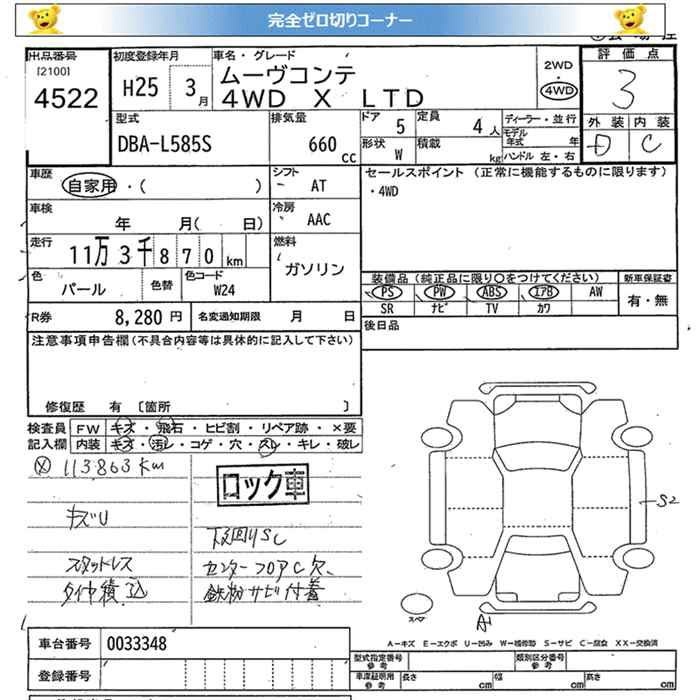 完全ゼロ切りコーナー
出品番号 初度登録年月 車名・グレード 2WD・4WD 評価点
[2100] 4522 H25 3月 ムーヴコンテ 3
4WD X LTD
型式 排気量 ドア 定員 ディーラー・並行 外装 内装
DBA-L585S 660cc 5 4人 モデル年式 年 D C
形状 W 積載 kg ハンドル 左・右
車歴 自家用・( ) シフト AT セールスポイント (正常に機能するものに限ります)
・4WD
車検 年 月( 日) 冷房 AAC
走行 11万3千870km 燃料 ガソリン
色 パール 色替 色コード W24
装備品(純正品に限り○をつけてください) 新車保証書
PS PW ABS エアB AW 有・無
SR ナビ TV カワ
R券 8,280円 名変通知期限 月 日 後日品
注意事項申告欄(不具合内容等は具体的に記入して下さい)
修復歴 有 〔箇所 〕
検査員 FW キズ・飛石・ヒビ割・リペア跡・×要
記入欄 内装 キズ・汚レ・コゲ・穴・スレ・キレ・破レ
113863km
ロック車
キズU
下回りSC
スタットレス センターフロアC欠、
タイヤ積込 鉄粉サビ付着
S2
スペア
A1
A-キズ E-エクボ U-凹み W-補修跡 S-サビ C-腐食 XX-交換済
車台番号 0033348
型式指定番号 参考 類別区分番号 参考
登録番号 車庫証明用 参考 長さ cm 幅 cm 高さ cm